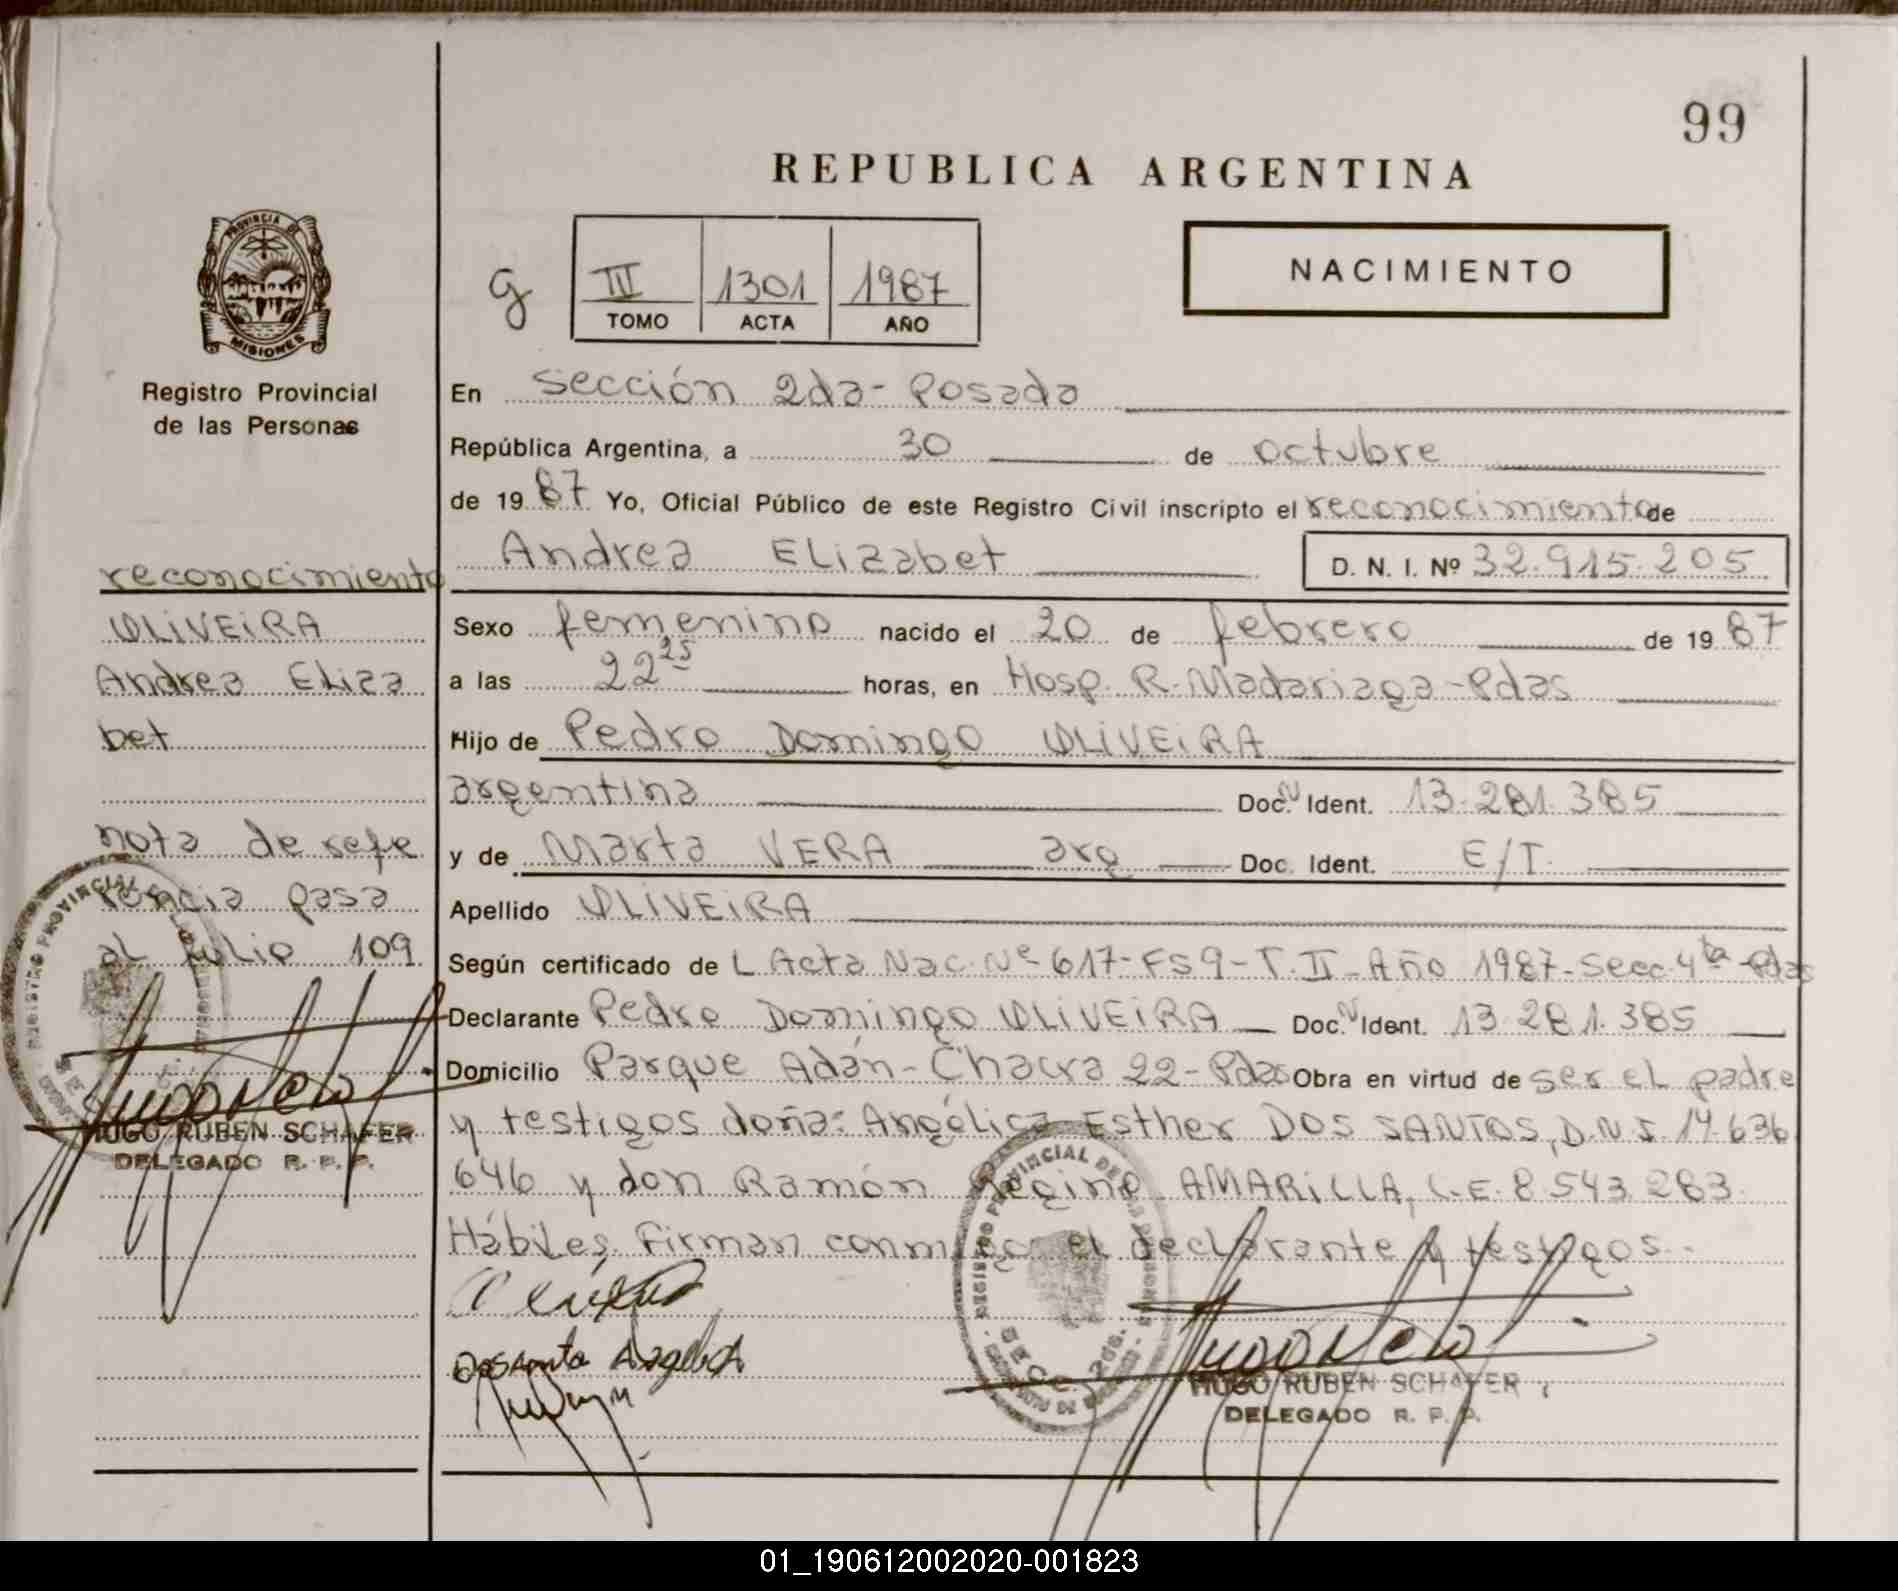 99
REPUBLICA ARGENTINA
PROVINCIA DE
MISIONES
Registro Provincial
de las Personas
g
III 1301 1987
TOMO ACTA AÑO
NACIMIENTO
En Sección 2da - Posada
República Argentina, a 30 de octubre
de 1987 Yo, Oficial Público de este Registro Civil inscripto el reconocimiento de
Andrea ELizabet D. N. I. Nº 32.915.205
Sexo femenino nacido el 20 de febrero de 1987
a las 22 25 horas, en Hosp. R. Madariaga - Pdas
Hijo de Pedro Domingo OLIVEIRA
argentina Doc. N Ident. 13.281.385
y de Marta VERA arg Doc. Ident. E/T.
Apellido OLIVEIRA
Según certificado de L Acta Nac. Nº 617 - Fs 9 - T. II - Año 1987 - Secc. 4ta - Pdas
Declarante Pedro Domingo OLIVEIRA Doc. N Ident. 13.281.385
Domicilio Parque Adán - Chacra 22 - Pdas Obra en virtud de ser el padre
y testigos doña: Angélica Esther DOS SANTOS, D.N.I. 14.636
646 y don Ramón Regino AMARILLA, L.E. 8.543.283.
Hábiles, Firman conmigo el declarante y testigos.
HUGO RUBEN SCHAFER
DELEGADO R. P. P.
reconocimiento
OLIVEIRA
Andrea Eliza
bet
nota de refe
rencia pasa
al folio 109
HUGO RUBEN SCHAFER
DELEGADO R. P. P.
01_190612002020-001823